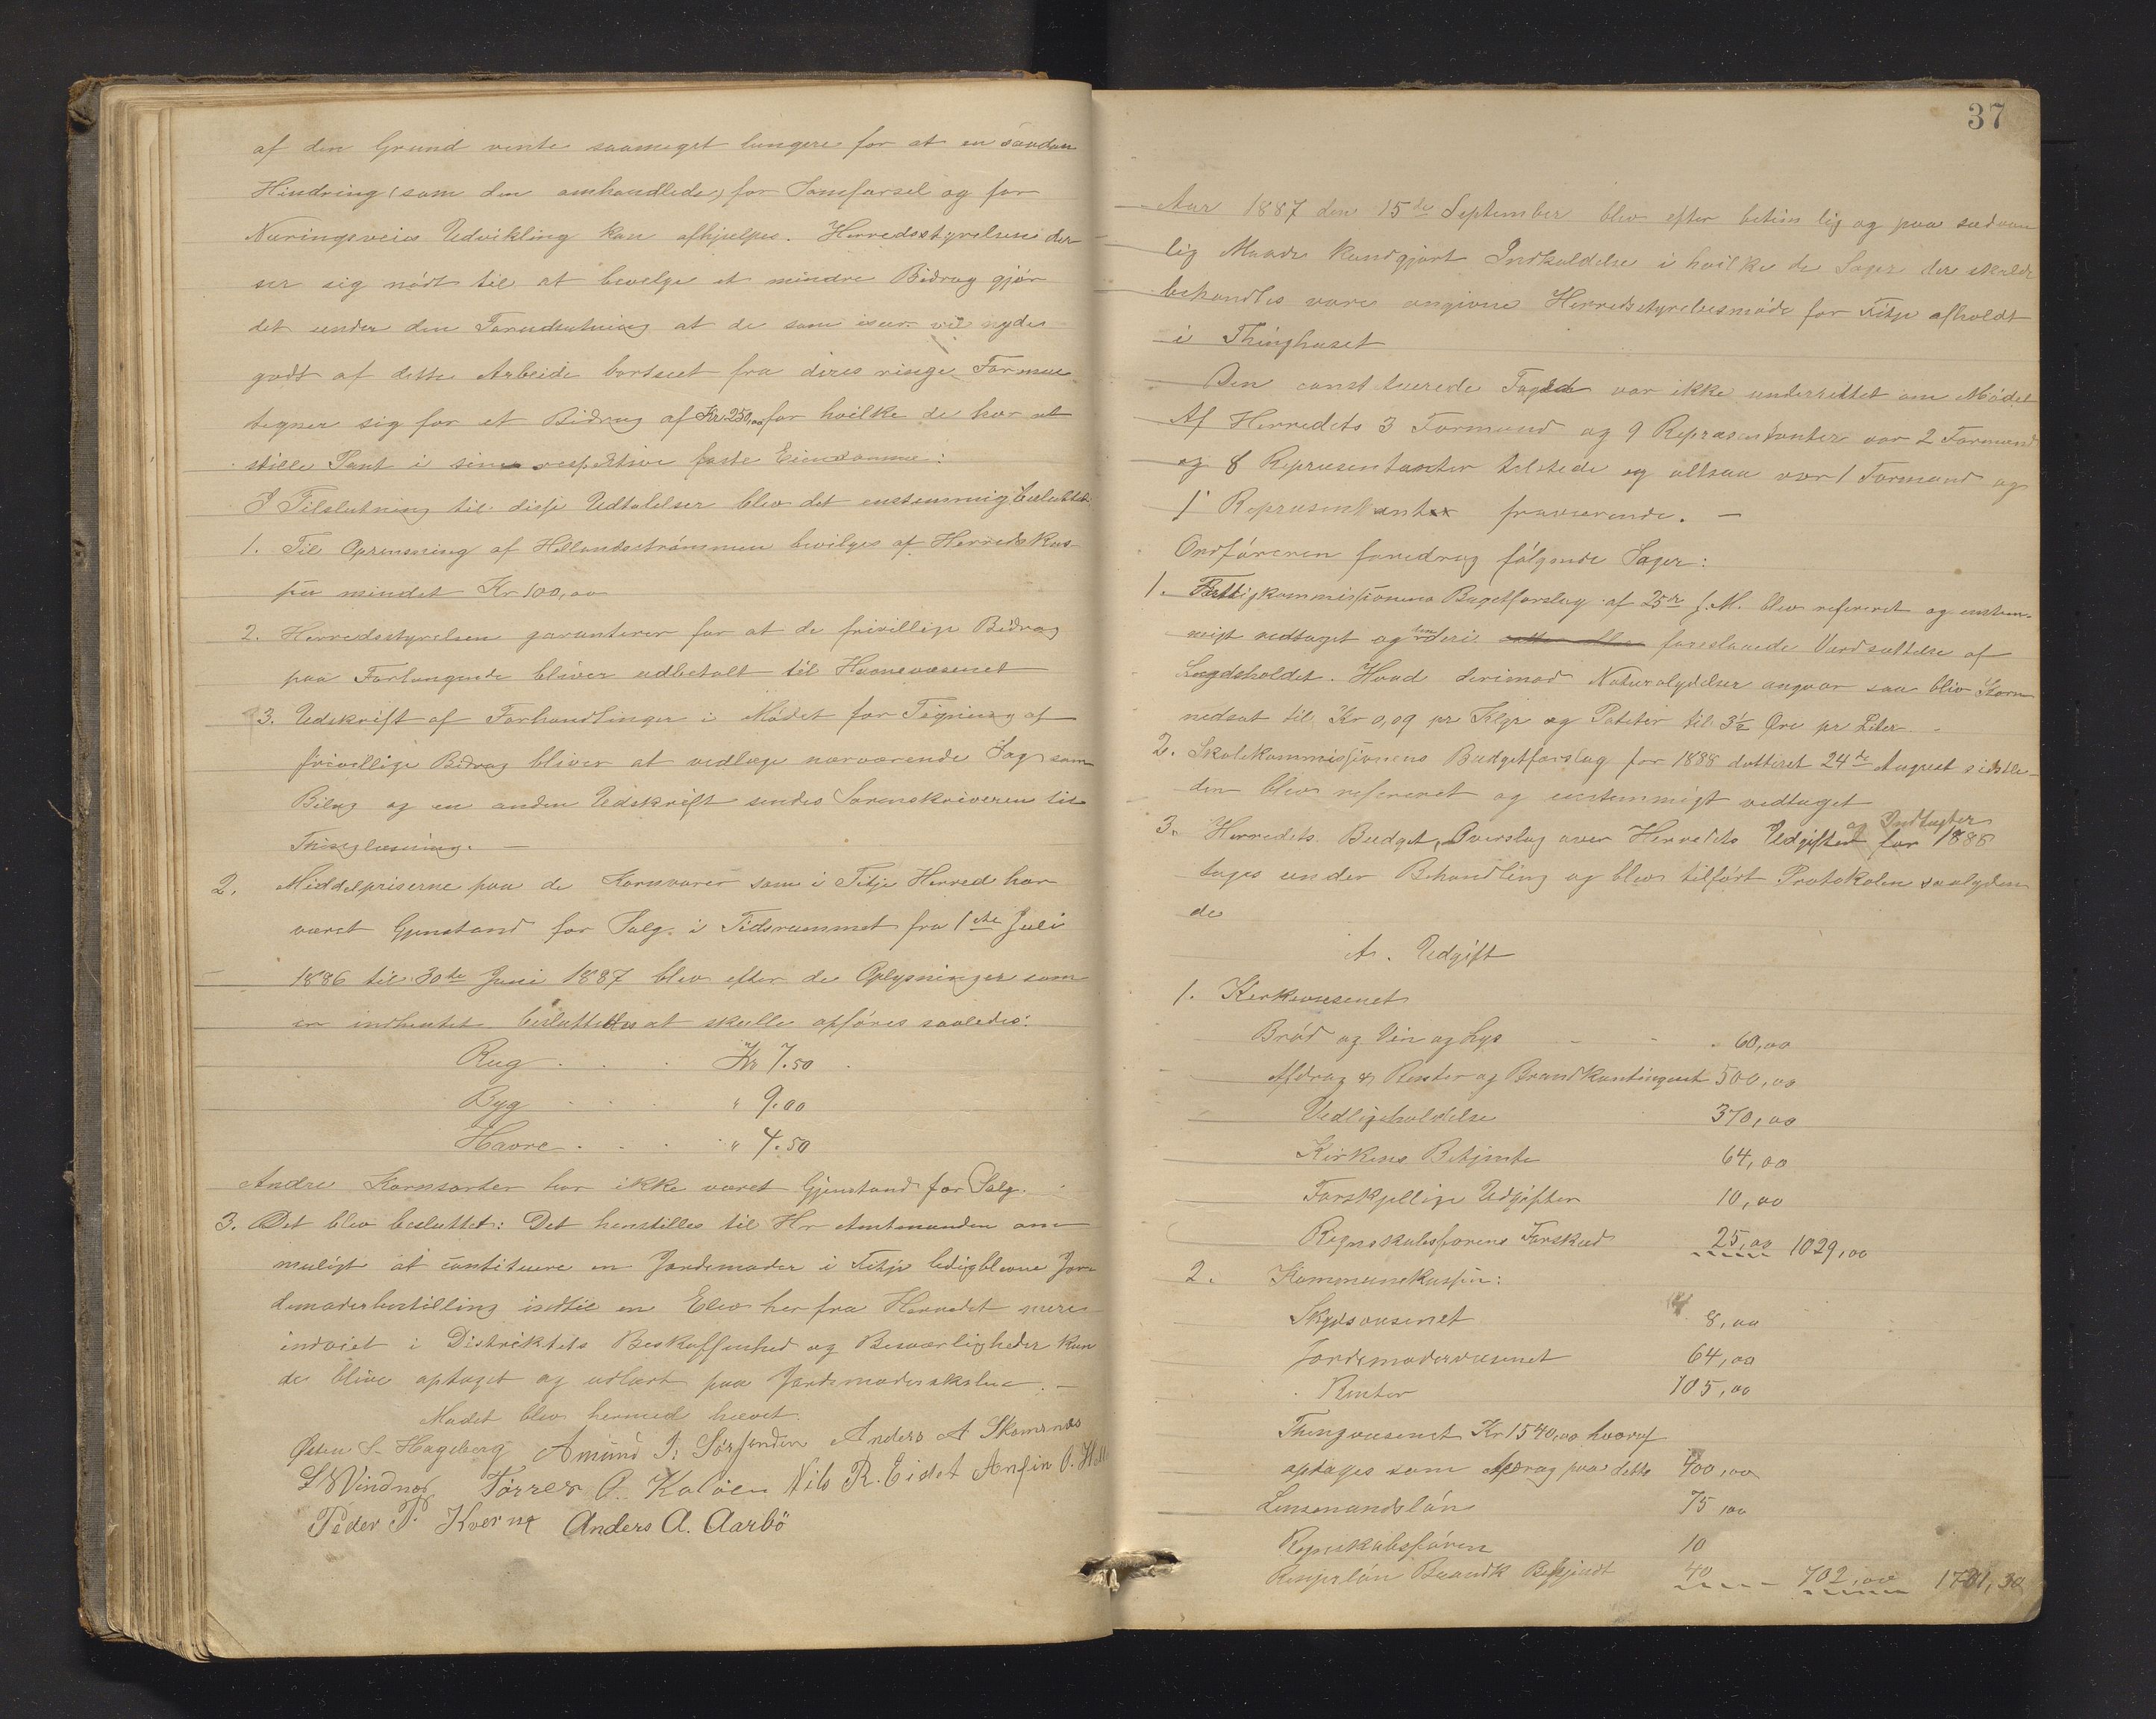 af den Grund vente saameget længere for at en saadan
Hindring (som den omhandlede) for Samfærsel og for
Næringsveies Udvikling kan afhjælpes. Herredsstyrelsen der
ser sig nödt til at bevelge et mindre Bidrag gjör
det under den Forudsætning at de som især vil nyde
godt af dette Arbeide bortseet fra deres ringe Formue
tegner sig for et Bidrag af Kr 250,00 for hvilke de har at
stille Pant i sine respektive faste Eiendomme:
I Tilslutning til disse Udtalelser blev det enstemmig besluttet:
1. Til Oprensning af Hellandsströmmen bevilges af Herredskas-
sen mindst Kr 100,00
2. Herredsstyrelsen garanterer for at de frivillige Bidrag
paa Forlangende bliver udbetalt til Havnevæsenet
3. Udskrift af Forhandlinger i Mödet for Tegning af
frivillige Bidrag bliver at vedlægge nærværende Sag som
Bilag og en anden Udskrift sendes Sorenskriveren til
Thinglæsning. —
2. Middelpriserne paa de Kornvarer som i Fitje Herred har
været Gjenstand for Salg i Tidsrummet fra 1ste Juli
1886 til 30te Juni 1887 blev efter de Oplysninger som
er indhentet besluttedes at skulle opföres saaledes:
Rug . . . Kr 7.50
Byg . . . " 9.00
Havre . . . " 4.50
Andre Kornsorter har ikke været Gjenstand for Salg.
3. Det blev besluttet: Det henstilles til Hr Amtmanden om
muligt at constituere en Jordemoder i Fitje ledigblevne Jor-
demoderbestilling indtil en Elev her fra Herredet mere
indviet i Distriktets Beskaffenhed og Besværligheder kun
de blive optaget og udlært paa Jordemoderskolen. —
Mödet blev hermed hævet.
Östen S. Hageberg Amund I. Sörfonden Anders A Skomsnes
L Vindnes Torres O. Kalöen Nils R. Eidet Anfin O. Hell
Peder P. Kverne Anders A. Aarbö
37
Aar 1887 den 15de September blev efter betimelig og paa sædvan
lig Maade kundgjort Indkaldelse i hvilke de Sager der skulde
behandles vare angivne Herredsstyrelsesmöde for Fitje afholdt
i Thinghuset
Den constituerede Foged var ikke underrettet om Mödet
Af Herredets 3 Formænd og 9 Repræsentanter var 2 Formænd
og 8 Repræsentanter tilstede og altsaa var 1 Formand og
1 Repræsentant fraværende. —
Ordföreren foredrog fölgende Sager:
1. Fattigkommissionens Bugetforslag af 25de f. M. blev refereret og enstem-
migt vedtaget og den deri foreslaaede Værdsættelse af
Lægdsholdet. Hvad derimod Naturalydelser angaar saa blev Korn
nedsat til Kr 0,09 pr Klgr og Poteter til 3½ Öre pr Liter.
2. Skolekommissionens Budgetforslag for 1888 datteret 24de August sidstle-
den blev refereret og enstemmigt vedtaget
og Indtægter
3. Herredets Budget, Overslag over Herredets Udgifter for 1888
toges under Behandling og blev tilfört Protokolen saalyden
de
A. Udgift
1. Kirkevæsenet
Bröd og Vin og Lys - - . 60,00
Afdrag & Renter og Brandkontingent 500,00
Vedligeholdelse 370,00
Kirkens Betjente 64,00
Forskjellige Udgifter 10,00
Regnskabsförens Forskud 25,00 1029,00
2. Kommunekassen:
Skydsvæsenet 8,00
Jordemodervæsenet 64,00
Renter 105,00
Thingvæsenet Kr 1540,00 hvoraf
optages som Afdrag paa dette 400,00
Lensmandslön 75,00
Regnskabsfören 10
Brandk Betjent 40 702,00 1731,30